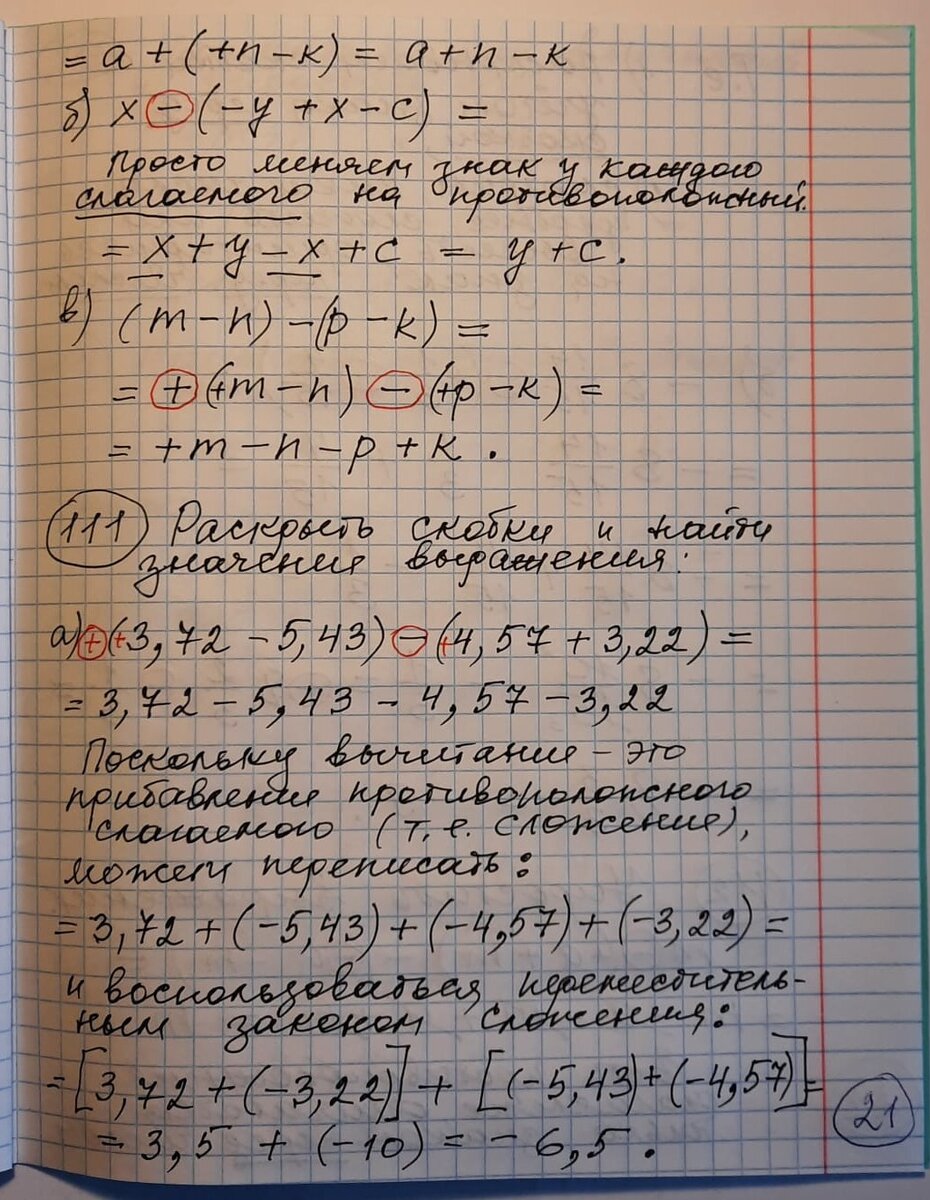 = a + (+n – к) = a + n – к
б) x – (– y + x – c) =
Просто меняем знак у каждого
слагаемого на противоположный.
= x + y – x + c = y + c.
в) (m – n) – (p – к) =
= + (+m – n) – (+p – к) =
= +m – n – p + к.
111 Раскрыть скобки и найти
значения выражения:
а) + (+3,72 – 5,43) – (+4,57 + 3,22) =
= 3,72 – 5,43 – 4,57 – 3,22
Поскольку вычитание – это
прибавление противоположного
слагаемого (т. е. сложение),
можем переписать:
= 3,72 + (–5,43) + (–4,57) + (–3,22) =
и воспользоваться переместитель-
ным законом сложения:
= [3,72 + (–3,22)] + [(–5,43) + (–4,57)] =
= 3,5 + (–10) = – 6,5.
21